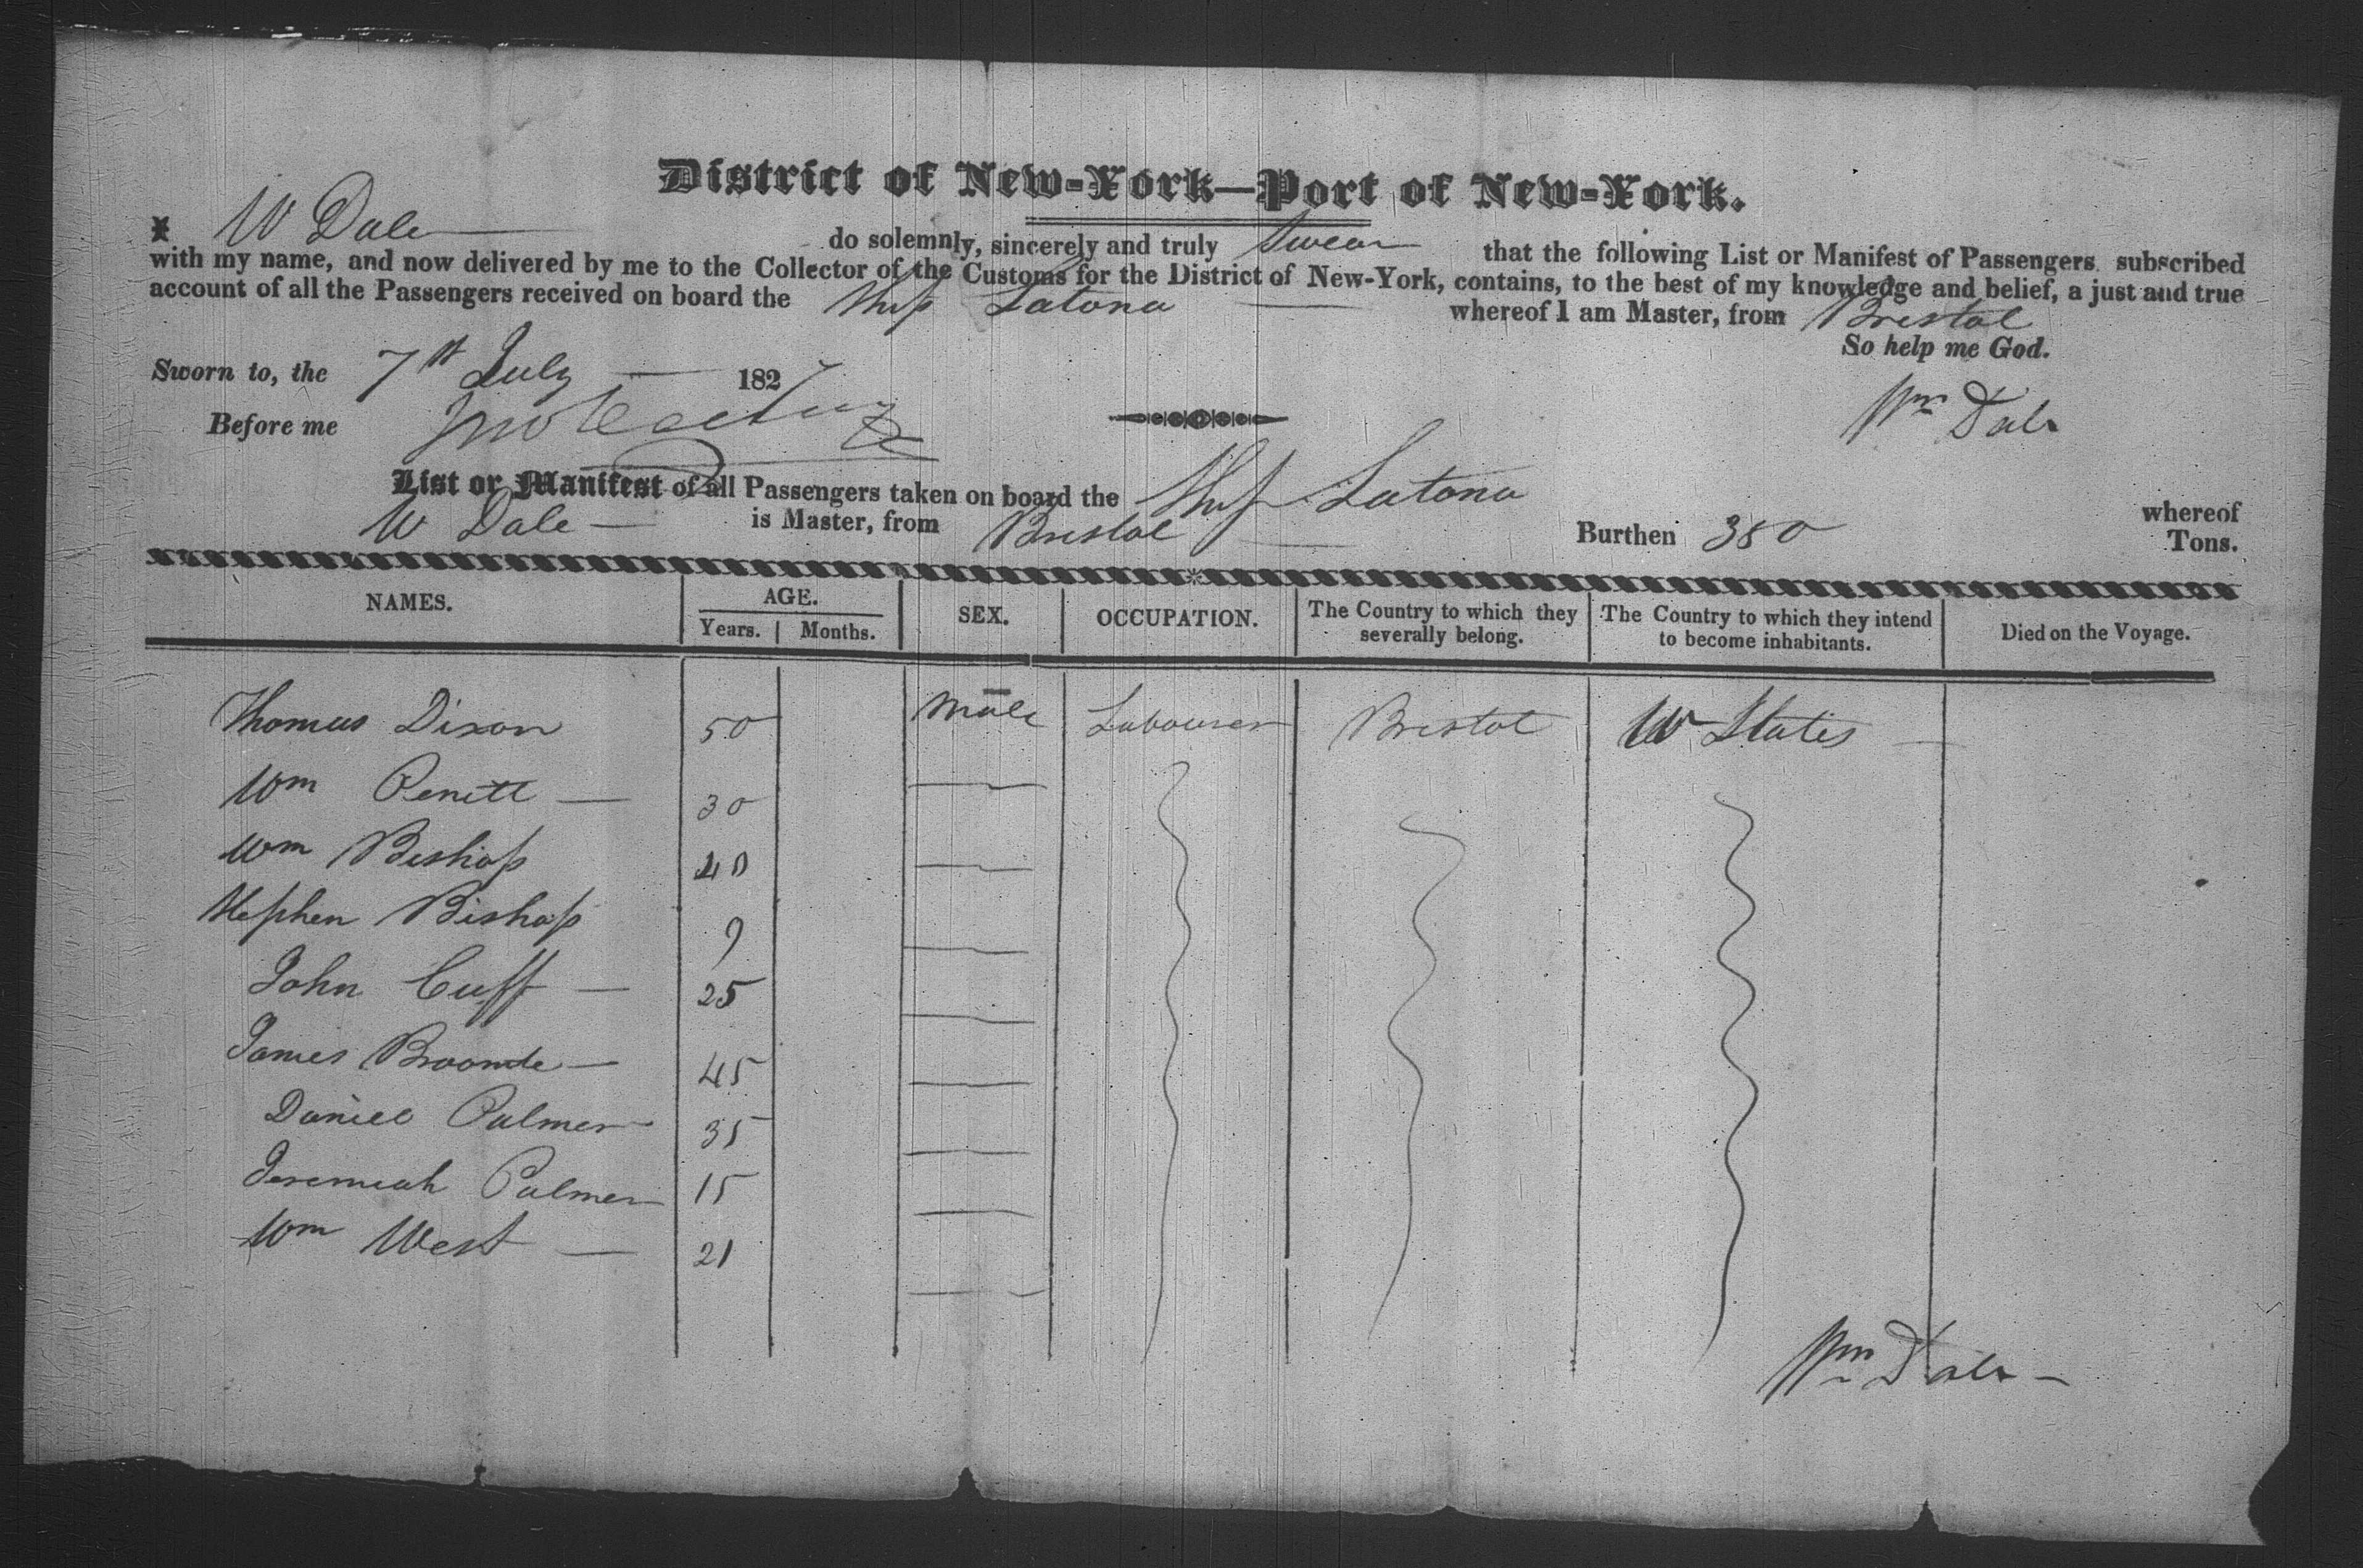 District of New-York—Port of New-York.
I W Dale do solemnly, sincerely and truly swear that the following List or Manifest of Passengers subscribed
with my name, and now delivered by me to the Collector of the Customs for the District of New-York, contains, to the best of my knowledge and belief, a just and true
account of all the Passengers received on board the Ship Latona whereof I am Master, from Bristol
So help me God.
Sworn to, the 7th July 1827
Before me
Wm Dale
List or Manifest of all Passengers taken on board the Ship Latona whereof
W Dale is Master, from Bristol Burthen 350 Tons.
NAMES. AGE. SEX. OCCUPATION. The Country to which they severally belong. The Country to which they intend to become inhabitants. Died on the Voyage.
Years. Months.
Thomas Dixon 50 Male Labourer Bristol U States
Wm 30
Wm Bishop 40
Stephen Bishop 9
John Cuff 25
James 45
Daniel Palmer 35
Jeremiah Palmer 15
Wm West 21
Wm Dale